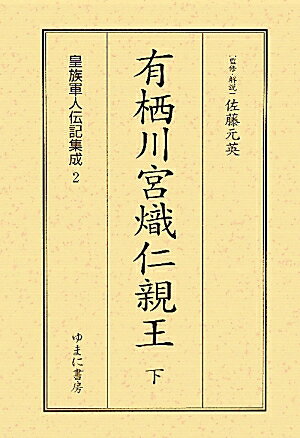 監修・解説 佐藤元英
有栖川宮熾仁親王 下
皇族軍人伝記集成 2
ゆまに書房